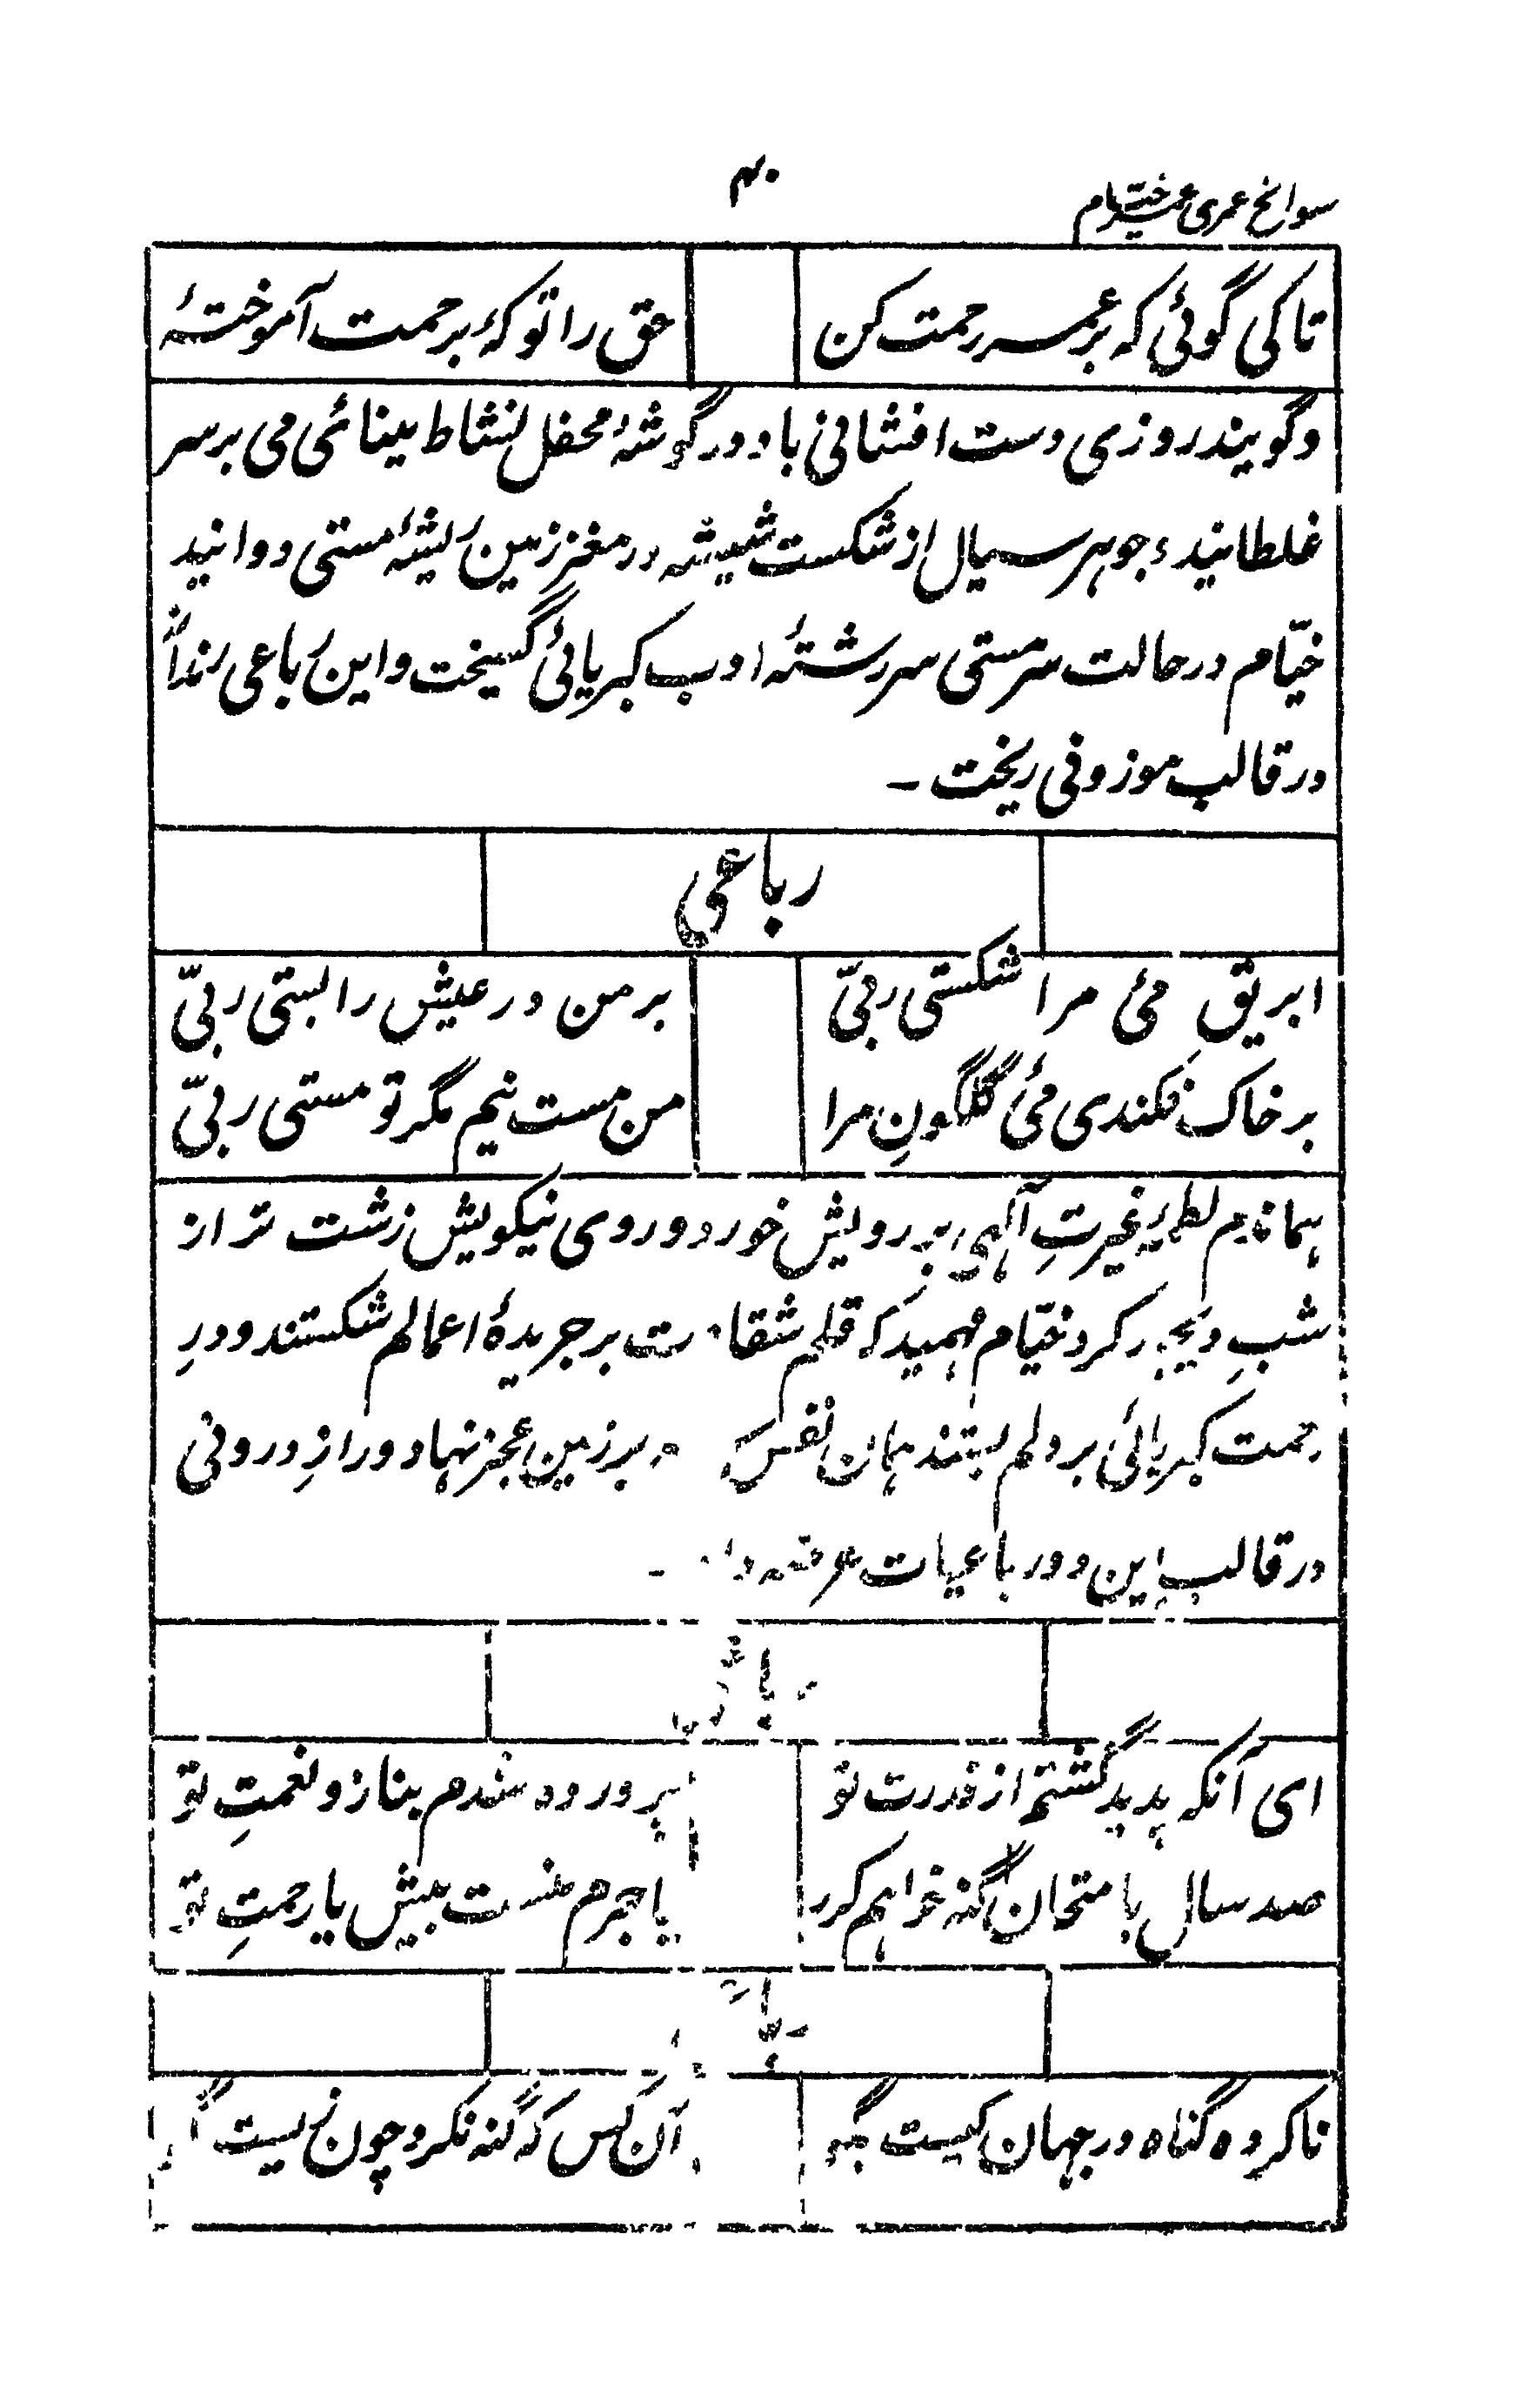 سوانح عمری عمر خیّام
۴۰
تا کی گوئی که بر عمر رحمت کن
حق را تو که برحمت آموختهٔ
و گویند روزی دست افشانی باد در گوشهٔ محفل نشاط مینائی می بر سر
غلطانید و جوهر سیال از شکست شیشه در مغز زمین ریشهٔ مستی دوانید
خیّام در حالت سرمستی سررشتهٔ ادب کبریائی گسیخت و این رباعی رندانه
در قالب موزونی ریخت ۔
رباعی
ابریقِ مئ مرا شکستی ربّی
بر من در عیش را بستی ربّی
بر خاک فکندی مئ گلگونِ مرا
من مست نیم مگر تو مستی ربّی
هماندم لطمهٔ غیرتِ آلهی بر رویش خورد و روی نیکویش زشت تر از
شبِ دیجور کرد خیّام فهمید که قلم شقاوت بر جریدهٔ اعمالم شکستند و درِ
رحمت کبریائی بر دلم بستند همان نفس بر زمین عجز نهاد و رازِ درونی
در قالب این دو رباعیات عرضه داد ۔
ای آنکه پدید گشتم از قدرت تو
پرورده شدم بناز و نعمتِ تو
صد سال بامتحان گنه خواهم کرد
یا جرم منست بیش یا رحمتِ تو
ناکرده گناه در جهان کیست بگو
آن کس که گنه نکرد چون زیست